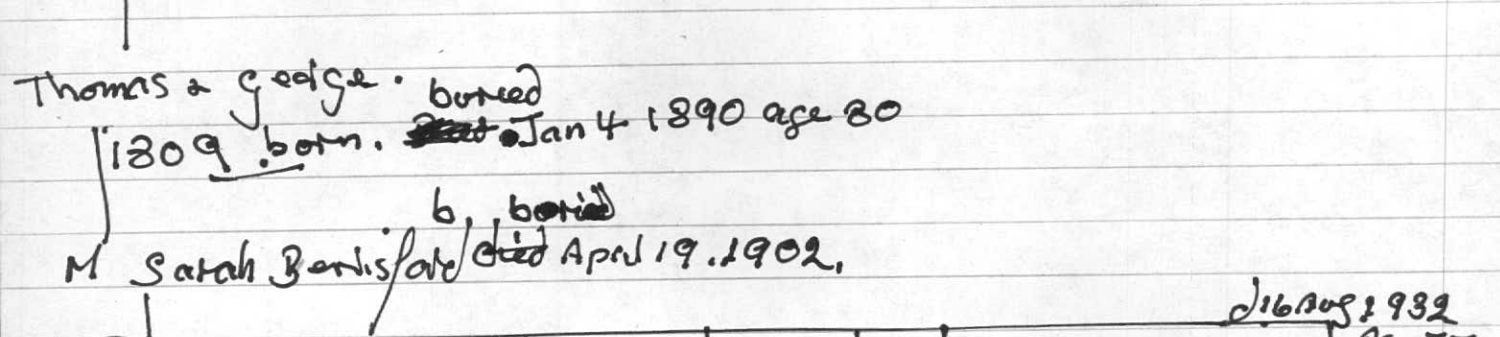 Thomas & George.
buried
1809 born. Jan 4 1890 age 80
b, buried
M Sarah Berrisford died April 19.1902.
d16Aug1932